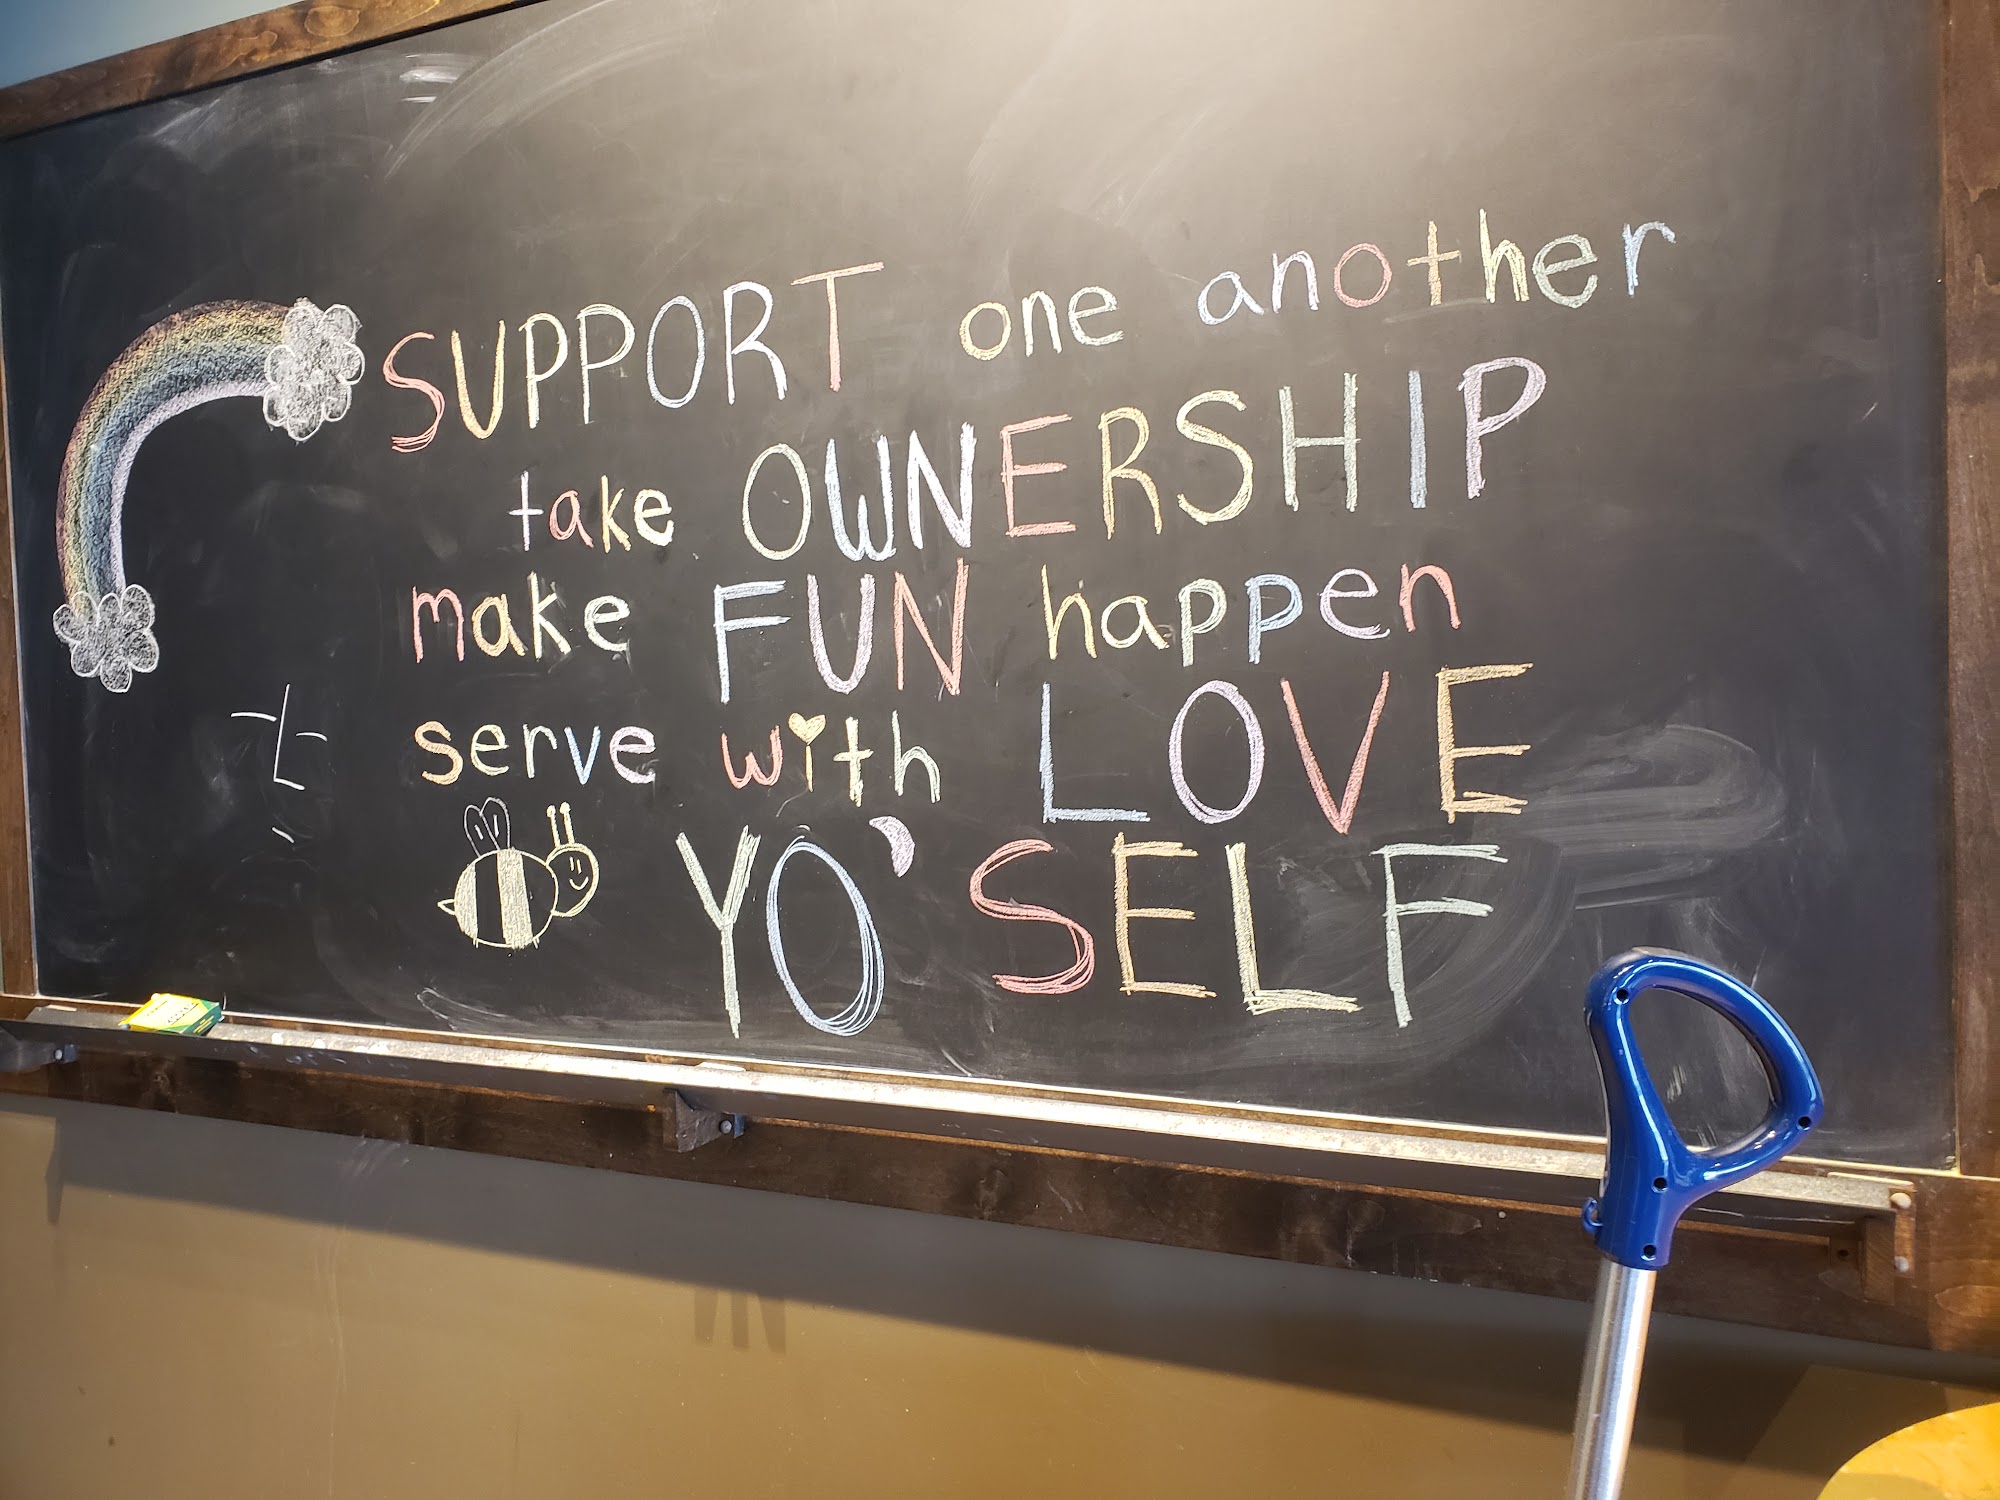 SUPPORT one another
take OWNERSHIP
make FUN happen
serve with LOVE
YO'SELF